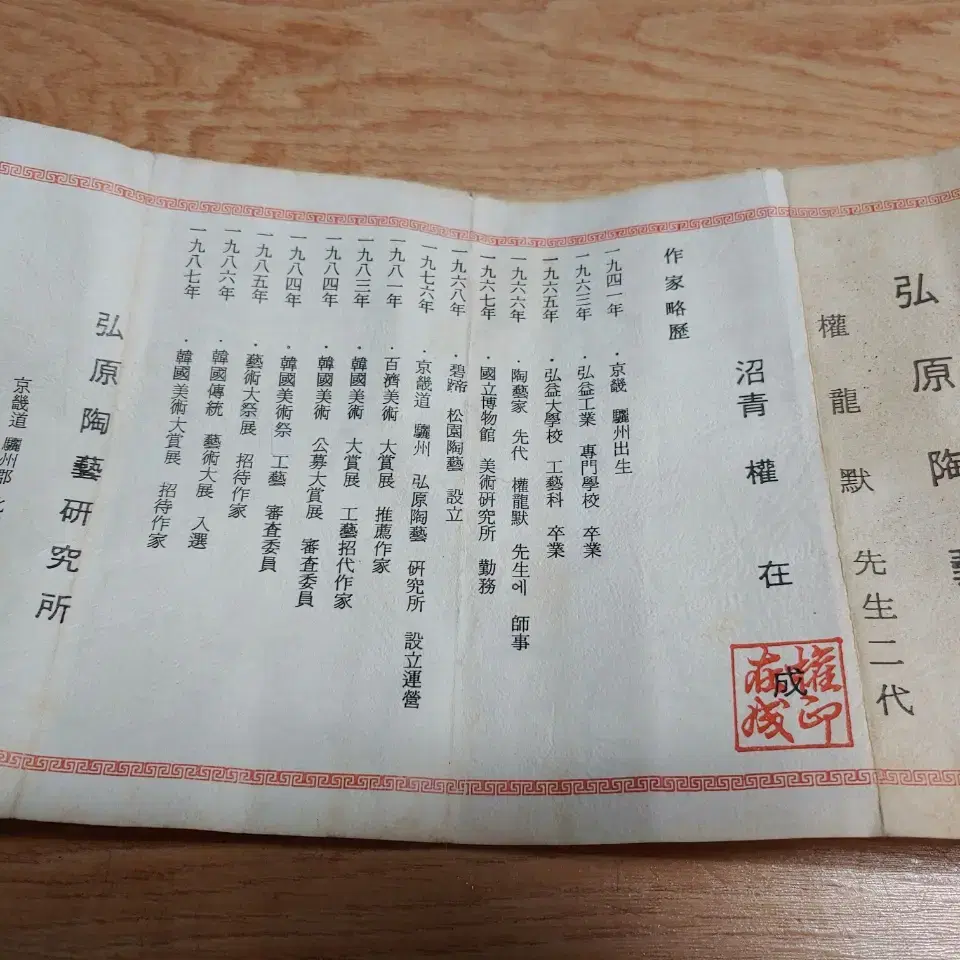 弘原陶藝
權龍默先生二代
沼青 權在成
權印在成
作家略歷
一九四一年 · 京畿 驪州出生
一九六三年 · 弘益工業 專門學校 卒業
一九六五年 · 弘益大學校 工藝科 卒業
一九六六年 · 陶藝家 先代 權龍默 先生에 師事
一九六七年 · 國立博物館 美術硏究所 勤務
一九六八年 · 碧蹄 松園陶藝 設立
一九七六年 · 京畿道 驪州 弘原陶藝 硏究所 設立運營
一九八一年 · 百濟美術 大賞展 推薦作家
一九八三年 · 韓國美術 大賞展 工藝招代作家
一九八四年 · 韓國美術 公募大賞展 審査委員
一九八四年 · 韓國美術祭 工藝 審査委員
一九八五年 · 藝術大祭展 招待作家
一九八六年 · 韓國傳統 藝術大展 入選
一九八七年 · 韓國美術大賞展 招待作家
弘原陶藝硏究所
京畿道 驪州郡